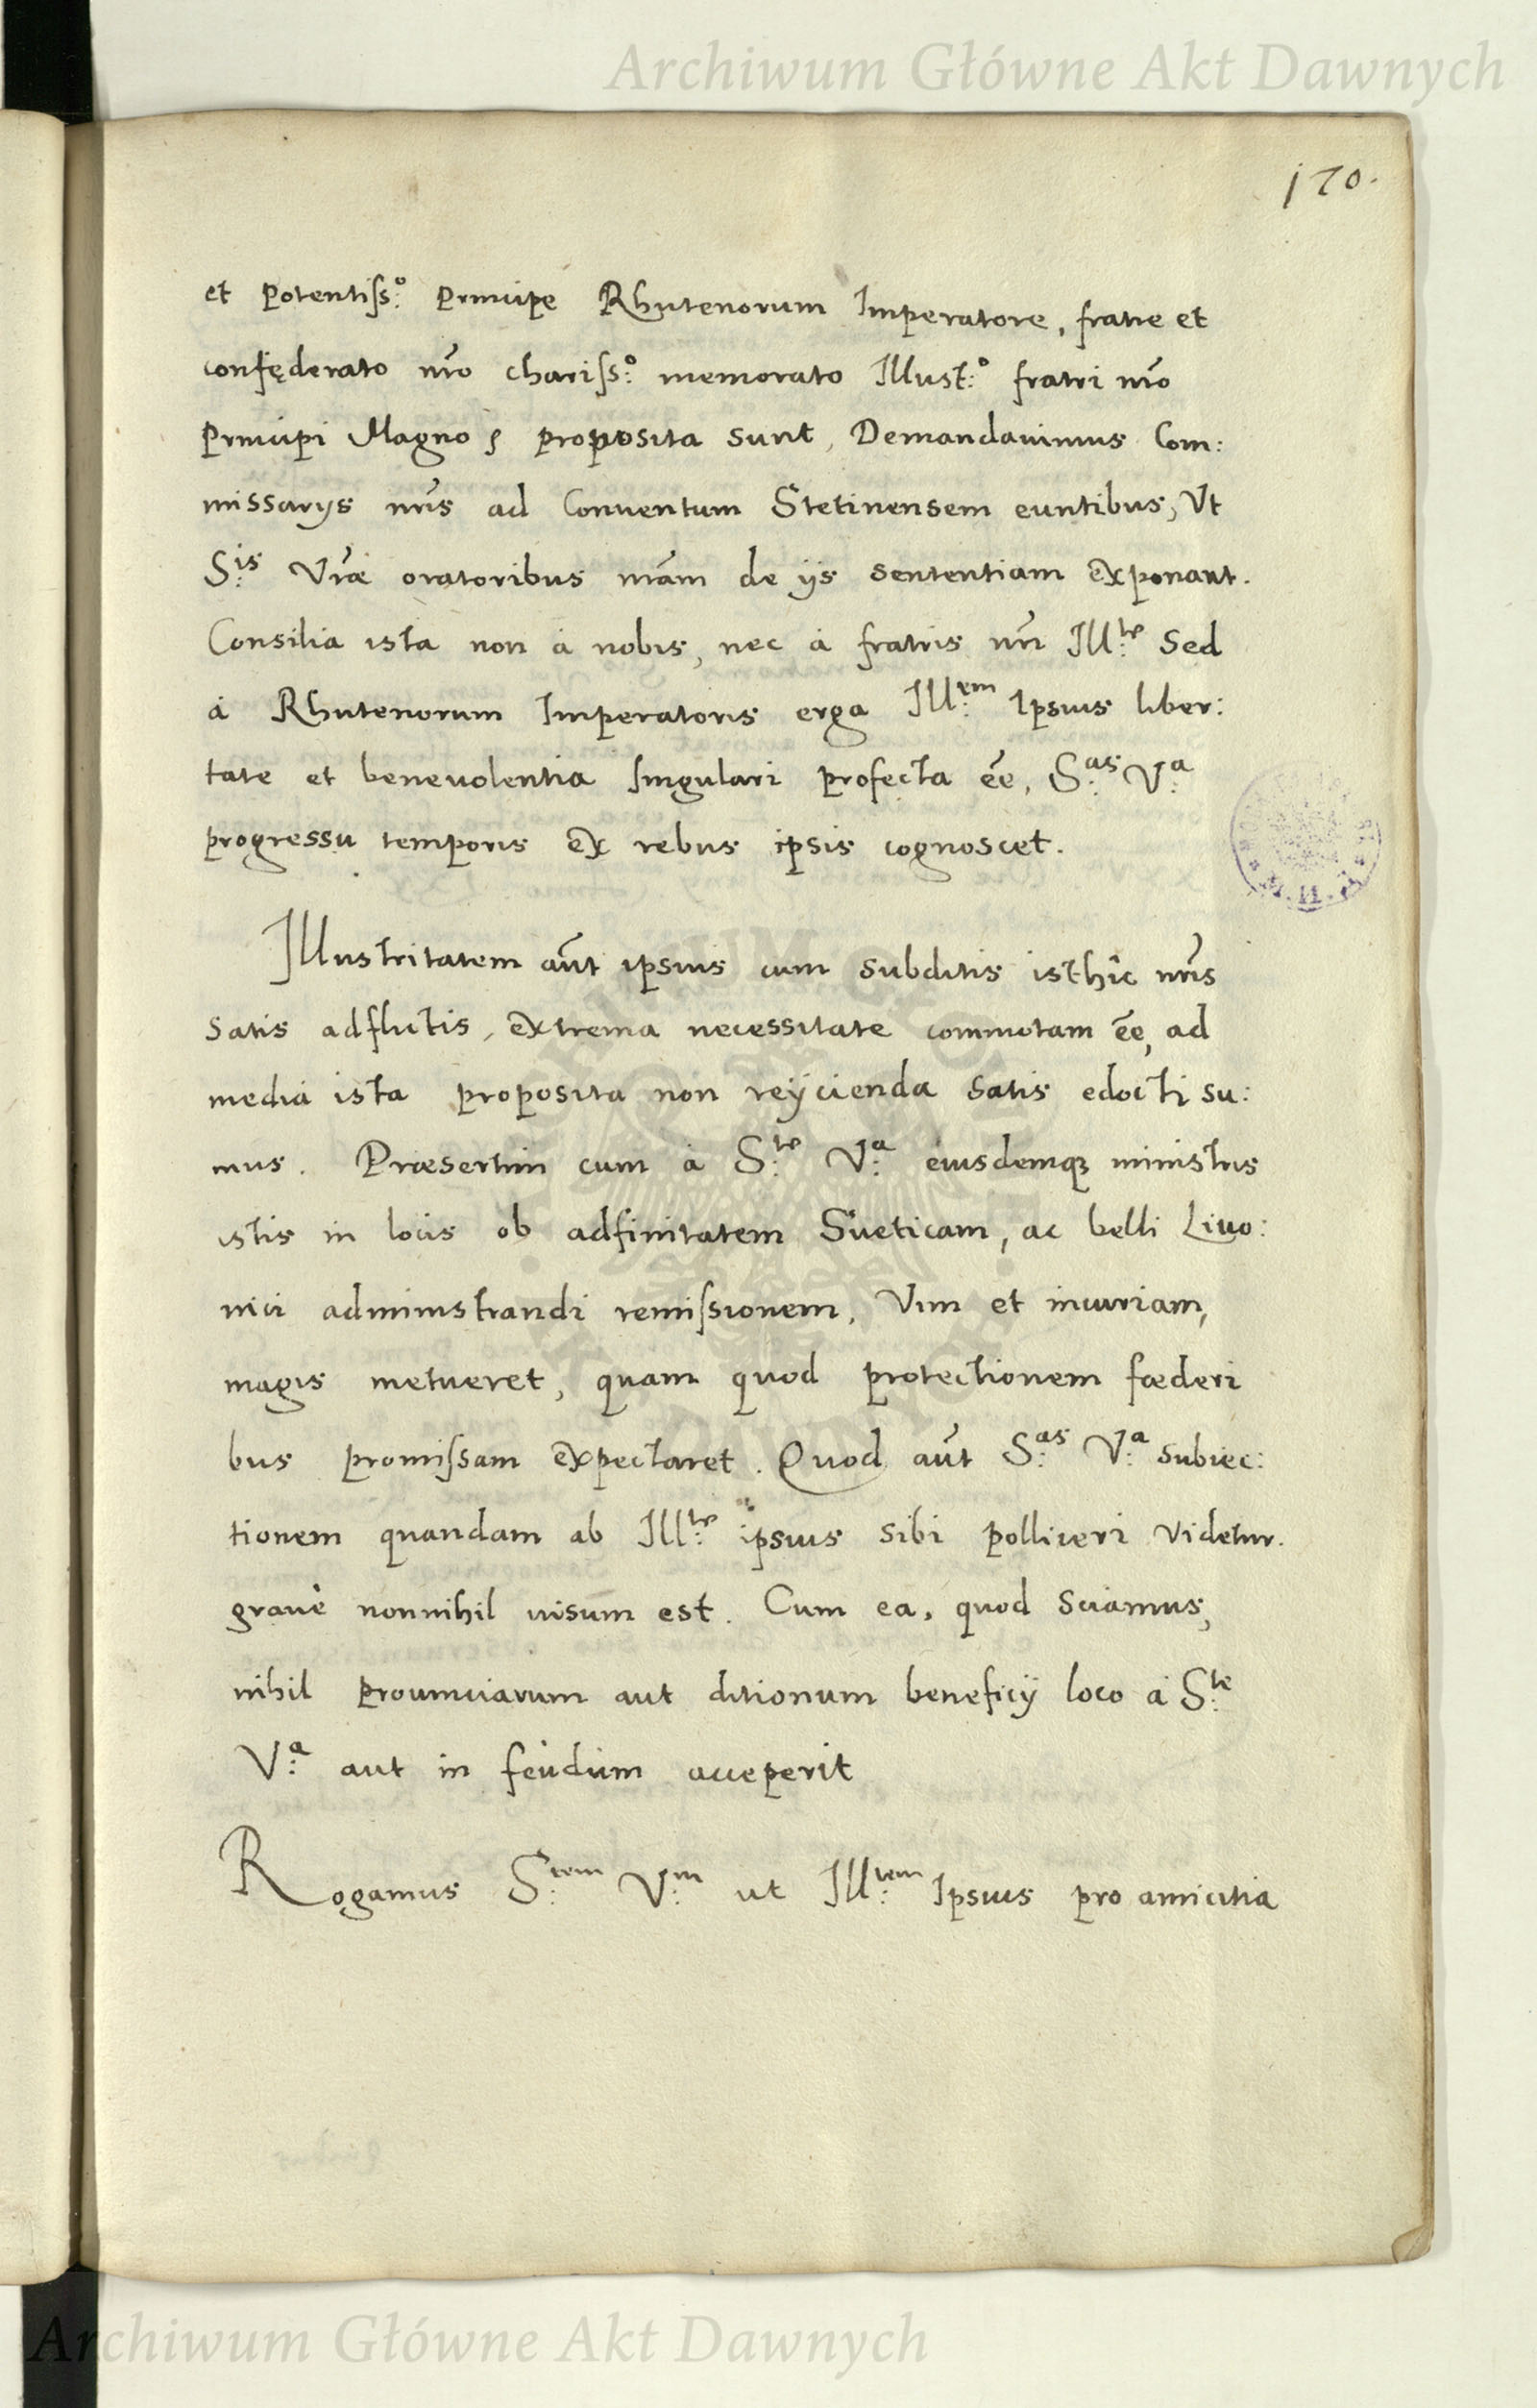 Archiwum Główne Akt Dawnych
170.
et Potentiss:º Principe Rhutenorum Imperatore, fratre et
confęderato nr̃o chariss:º memorato Illust:º fratri nr̃o
Principi Magno proposita sunt, Demandauimus Com:
missarijs nr̃is ad Conuentum Stetinensem euntibus, Vt
S:is Vr̃æ oratoribus nr̃am de ijs sententiam exponant.
Consilia ista non à nobis, nec à fratris nr̃i Ill:te Sed
à Rhutenorum Imperatoris erga Ill:em Ipsius liber:
tate et beneuolentia singulari profecta eẽ, S:as V:a
progressu temporis ex rebus ipsis cognoscet.
Illustritatem aũt ipsius cum subditis isthîc nr̃is
satis adflictis, extrema necessitate commotam eẽe, ad
media ista proposita non reijcienda satis edocti su:
mus. Præsertim cum à S:te V:a eiusdemq3 ministris
istis in locis ob adfinitatem Sueticam, ac belli Liuo:
nici administrandi remissionem, Vim et incuriam,
magis metueret, quam quod protectionem fœderi
bus promissam expectaret. Quod aũt S:as V:a subiec:
tionem quandam ab Ill:te ipsius sibi polliceri videtur.
grauè nonnihil uisum est. Cum ea, quod sciamus,
nihil prouinciarum aut ditionum beneficij loco à S:te
V:a aut in feudum acceperit
Rogamus S:tem V:m ut Ill:tem Ipsius pro amicitia
Archiwum Główne Akt Dawnych